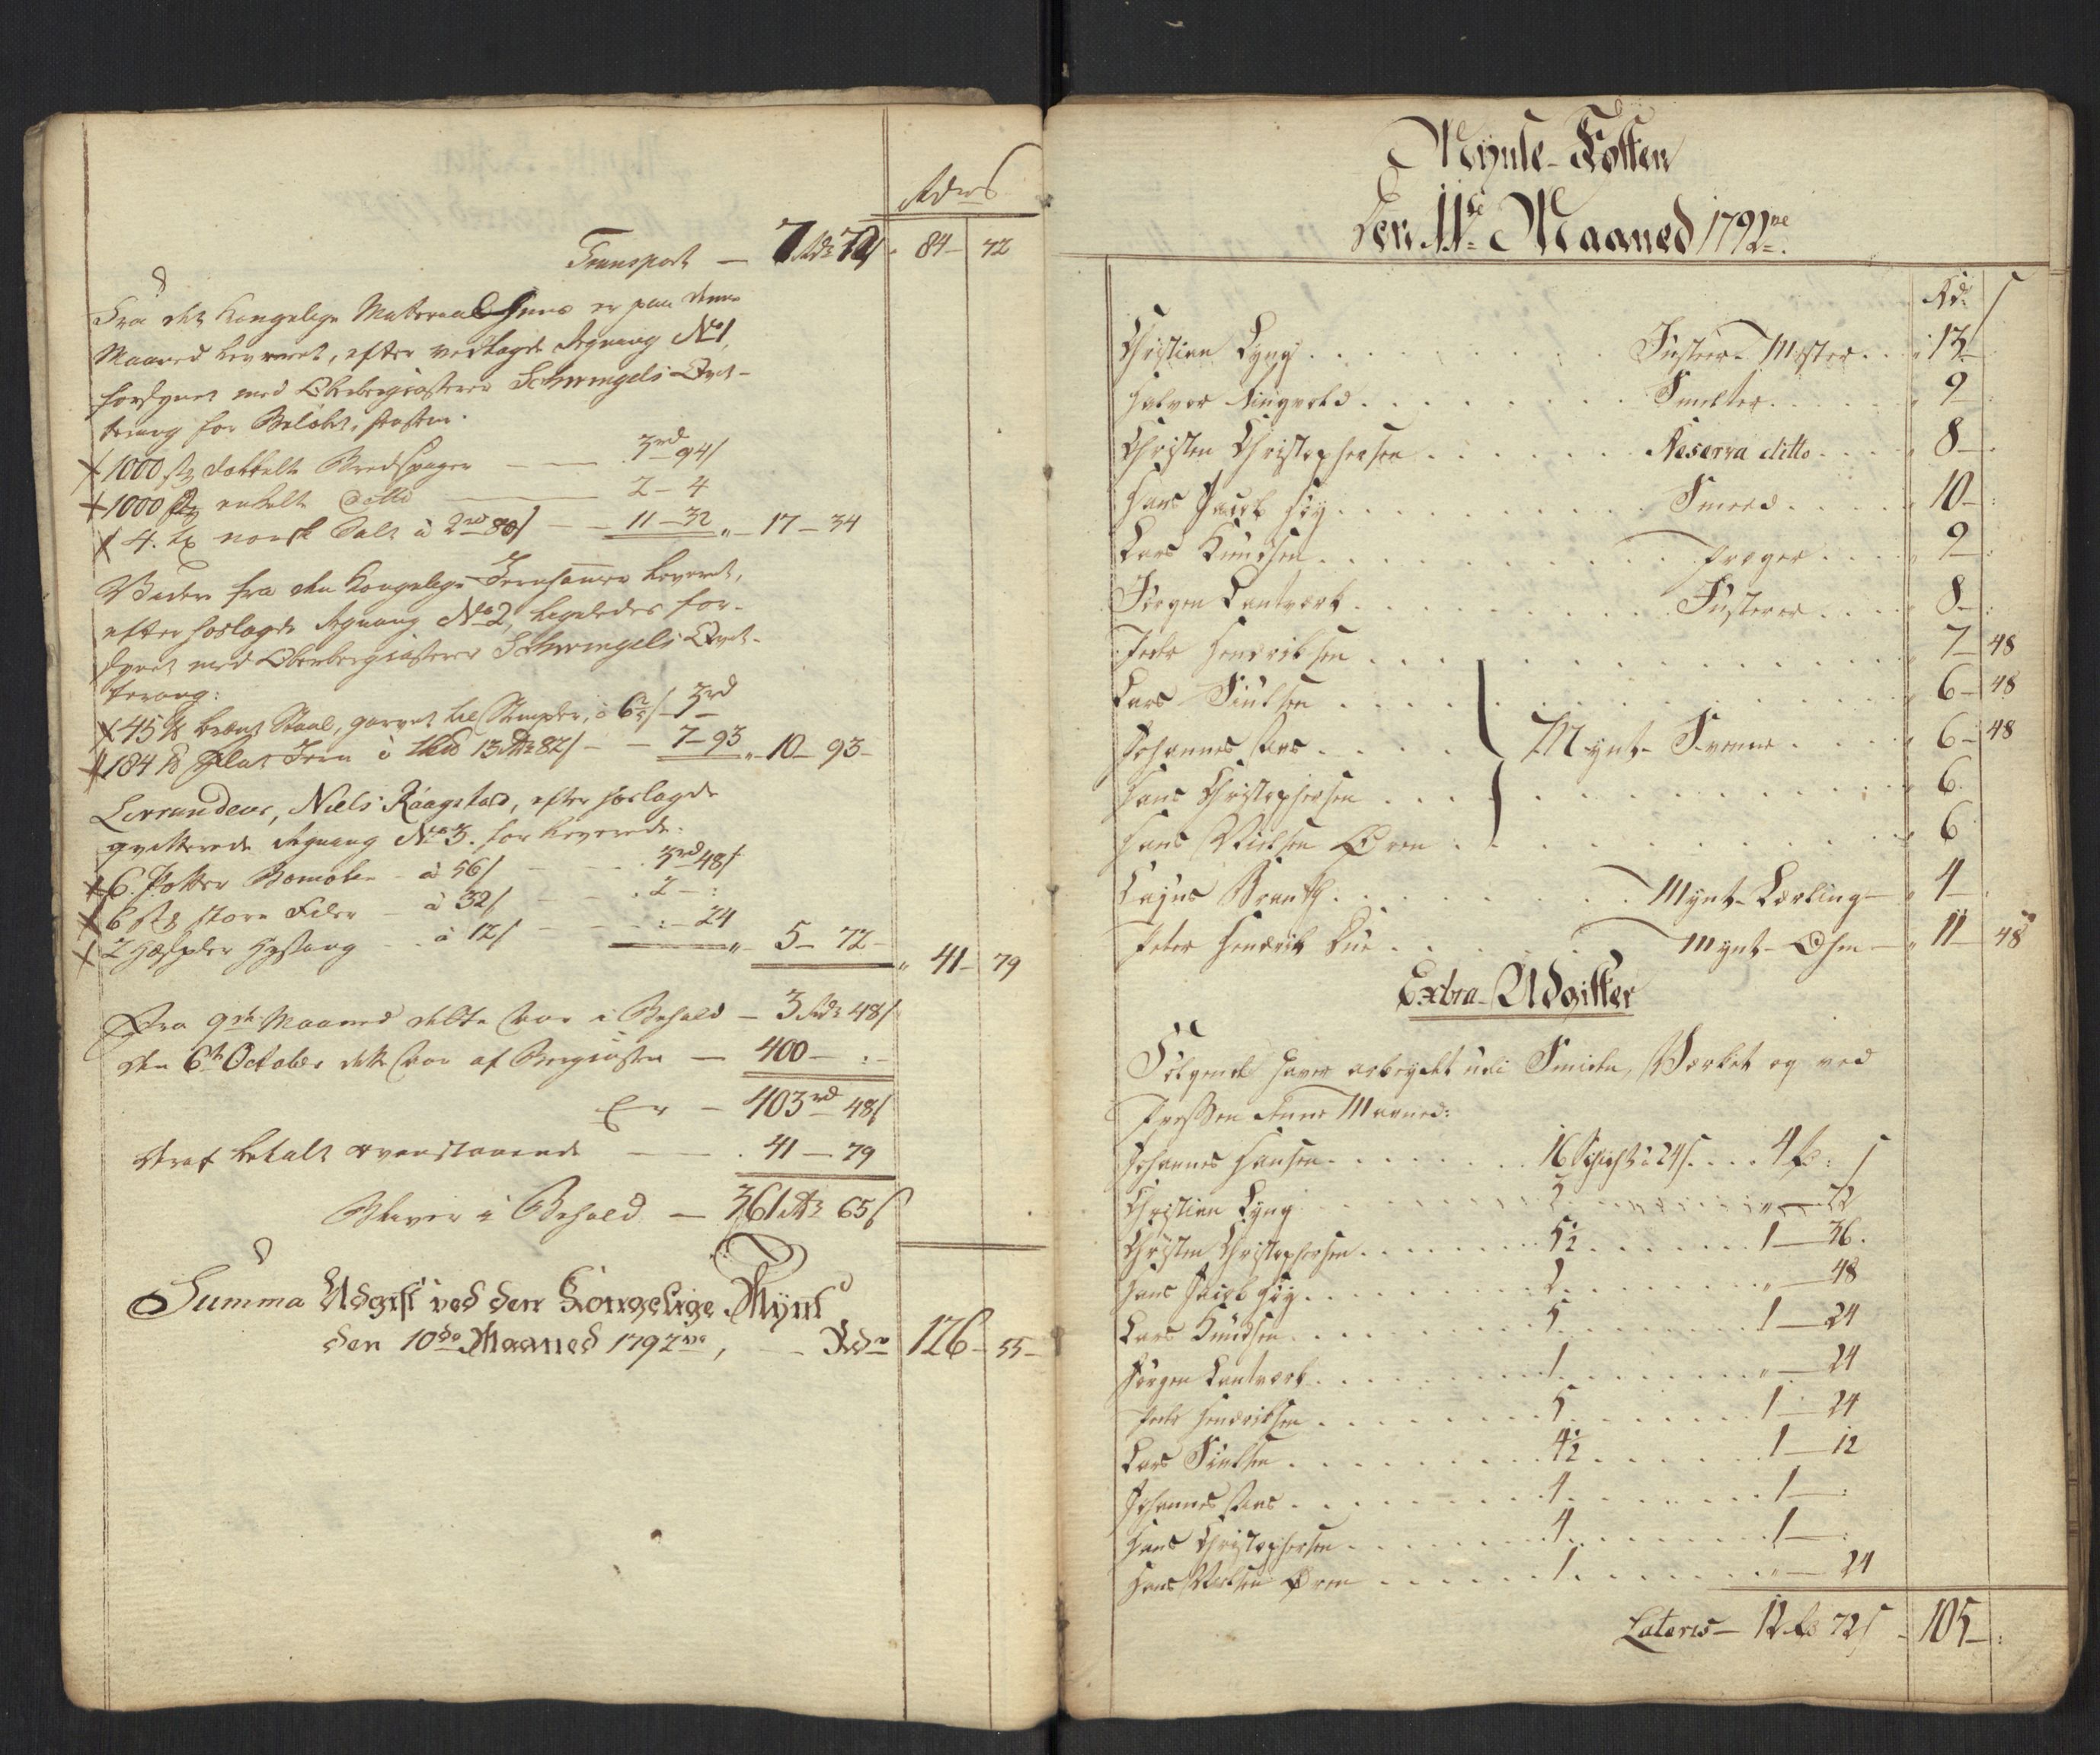 Rdr s
Transport — 7 Rdr 72 s 84 – 72
Fra det Kongelige Materialhuus er paa denne
Maaned leveret, efter vedlagde Regning No 1,
forsynet med Oberbergcasserer Schwingels Qvit-
tering for Beløbet,
1000 stk dobbelte Brodspiger — 3 rd 94 s
1000 stk enkelte Ditto — 2 – 4
4. Tr norsk Salt à 2 rd 80 s — 11 – 32 „ – 17 – 34
Videre fra den Kongelige Jernhammer leveret,
efter hoslagde Regning No 2, ligeledes for-
synet med Oberbergcasserer Schwingels Qvit-
tering:
45 ℔ brænt Staal, garvet til Stempler, à 6 s – 3 rd
184 ℔ Plat Jern à 13 Rdr 82 s — 7 – 93 „ 10 – 93 –
Leverandeur, Niels Raagstad, efter hoslagde
qvitterede Regning No 3. for leverede:
6. Potter Bomolie à 56 s — 3 rd 48 s
6 stk store Filer à 32 s — 2 – :
2 Hespler Hyssing à 12 s — : – 24 „ 5 – 72 –
„ 41 – 79
Fra 9de Maaned dette Aar i Behold — 3 Rdr 48 s
den 6te October dette Aar af Bergcassen — 400 – : –
Er — 403 rd 48 s
Deraf betalt ovenstaaende — 41 – 79
Bliver i Behold — 361 Rdr 65 s
Summa Udgift ved den Kongelige Mynt
den 10de Maaned 1792de, — Rdr 126 – 55 –
Mynte-Kosten
den 11te Maaned 1792de
Rd. s
Christian Lyng Justeer-Mester 13 –
Halvor Ringvold Smelter 9 –
Christen Christophersen Reserva ditto 8 –
Hans Jacob Høy Smeed 10 – :
Lars Knudsen Præger 9 – :
Jørgen Lantværk Justerer 8 – :
Peder Hendriksen 7 – 48
Lars Siulsen 6 – 48
Johannes Aas Mynt-Svenne 6 – 48
Hans Christophersen 6
Hans Nielsen Øren 6
Cajus Brandt Mynt-Lærling 4 –
Peter Hendrik Due Mynt-Ohm 11 – 48
Extra-Udgifter
Følgende haver arbeydet udi Smidien, Værket og ved
Pressen denne Maaned:
Johannes Hansen 16 Schicht à 24 s 4 Rd : s
Christian Lyng 3 „ – 72
Christen Christophersen 5½ 1 – 36
Hans Jacob Høy 2 „ – 48
Lars Knudsen 5 1 – 24
Jørgen Lantværk 1 „ – 24
Peder Hendriksen 5 1 – 24
Lars Siulsen 4½ 1 – 12
Johannes Aas 4 1 – :
Hans Christophersen 4 1 – :
Hans Nielsen Øren 1 „ – 24
Lateris — 12 Rd 72 s 105 – :